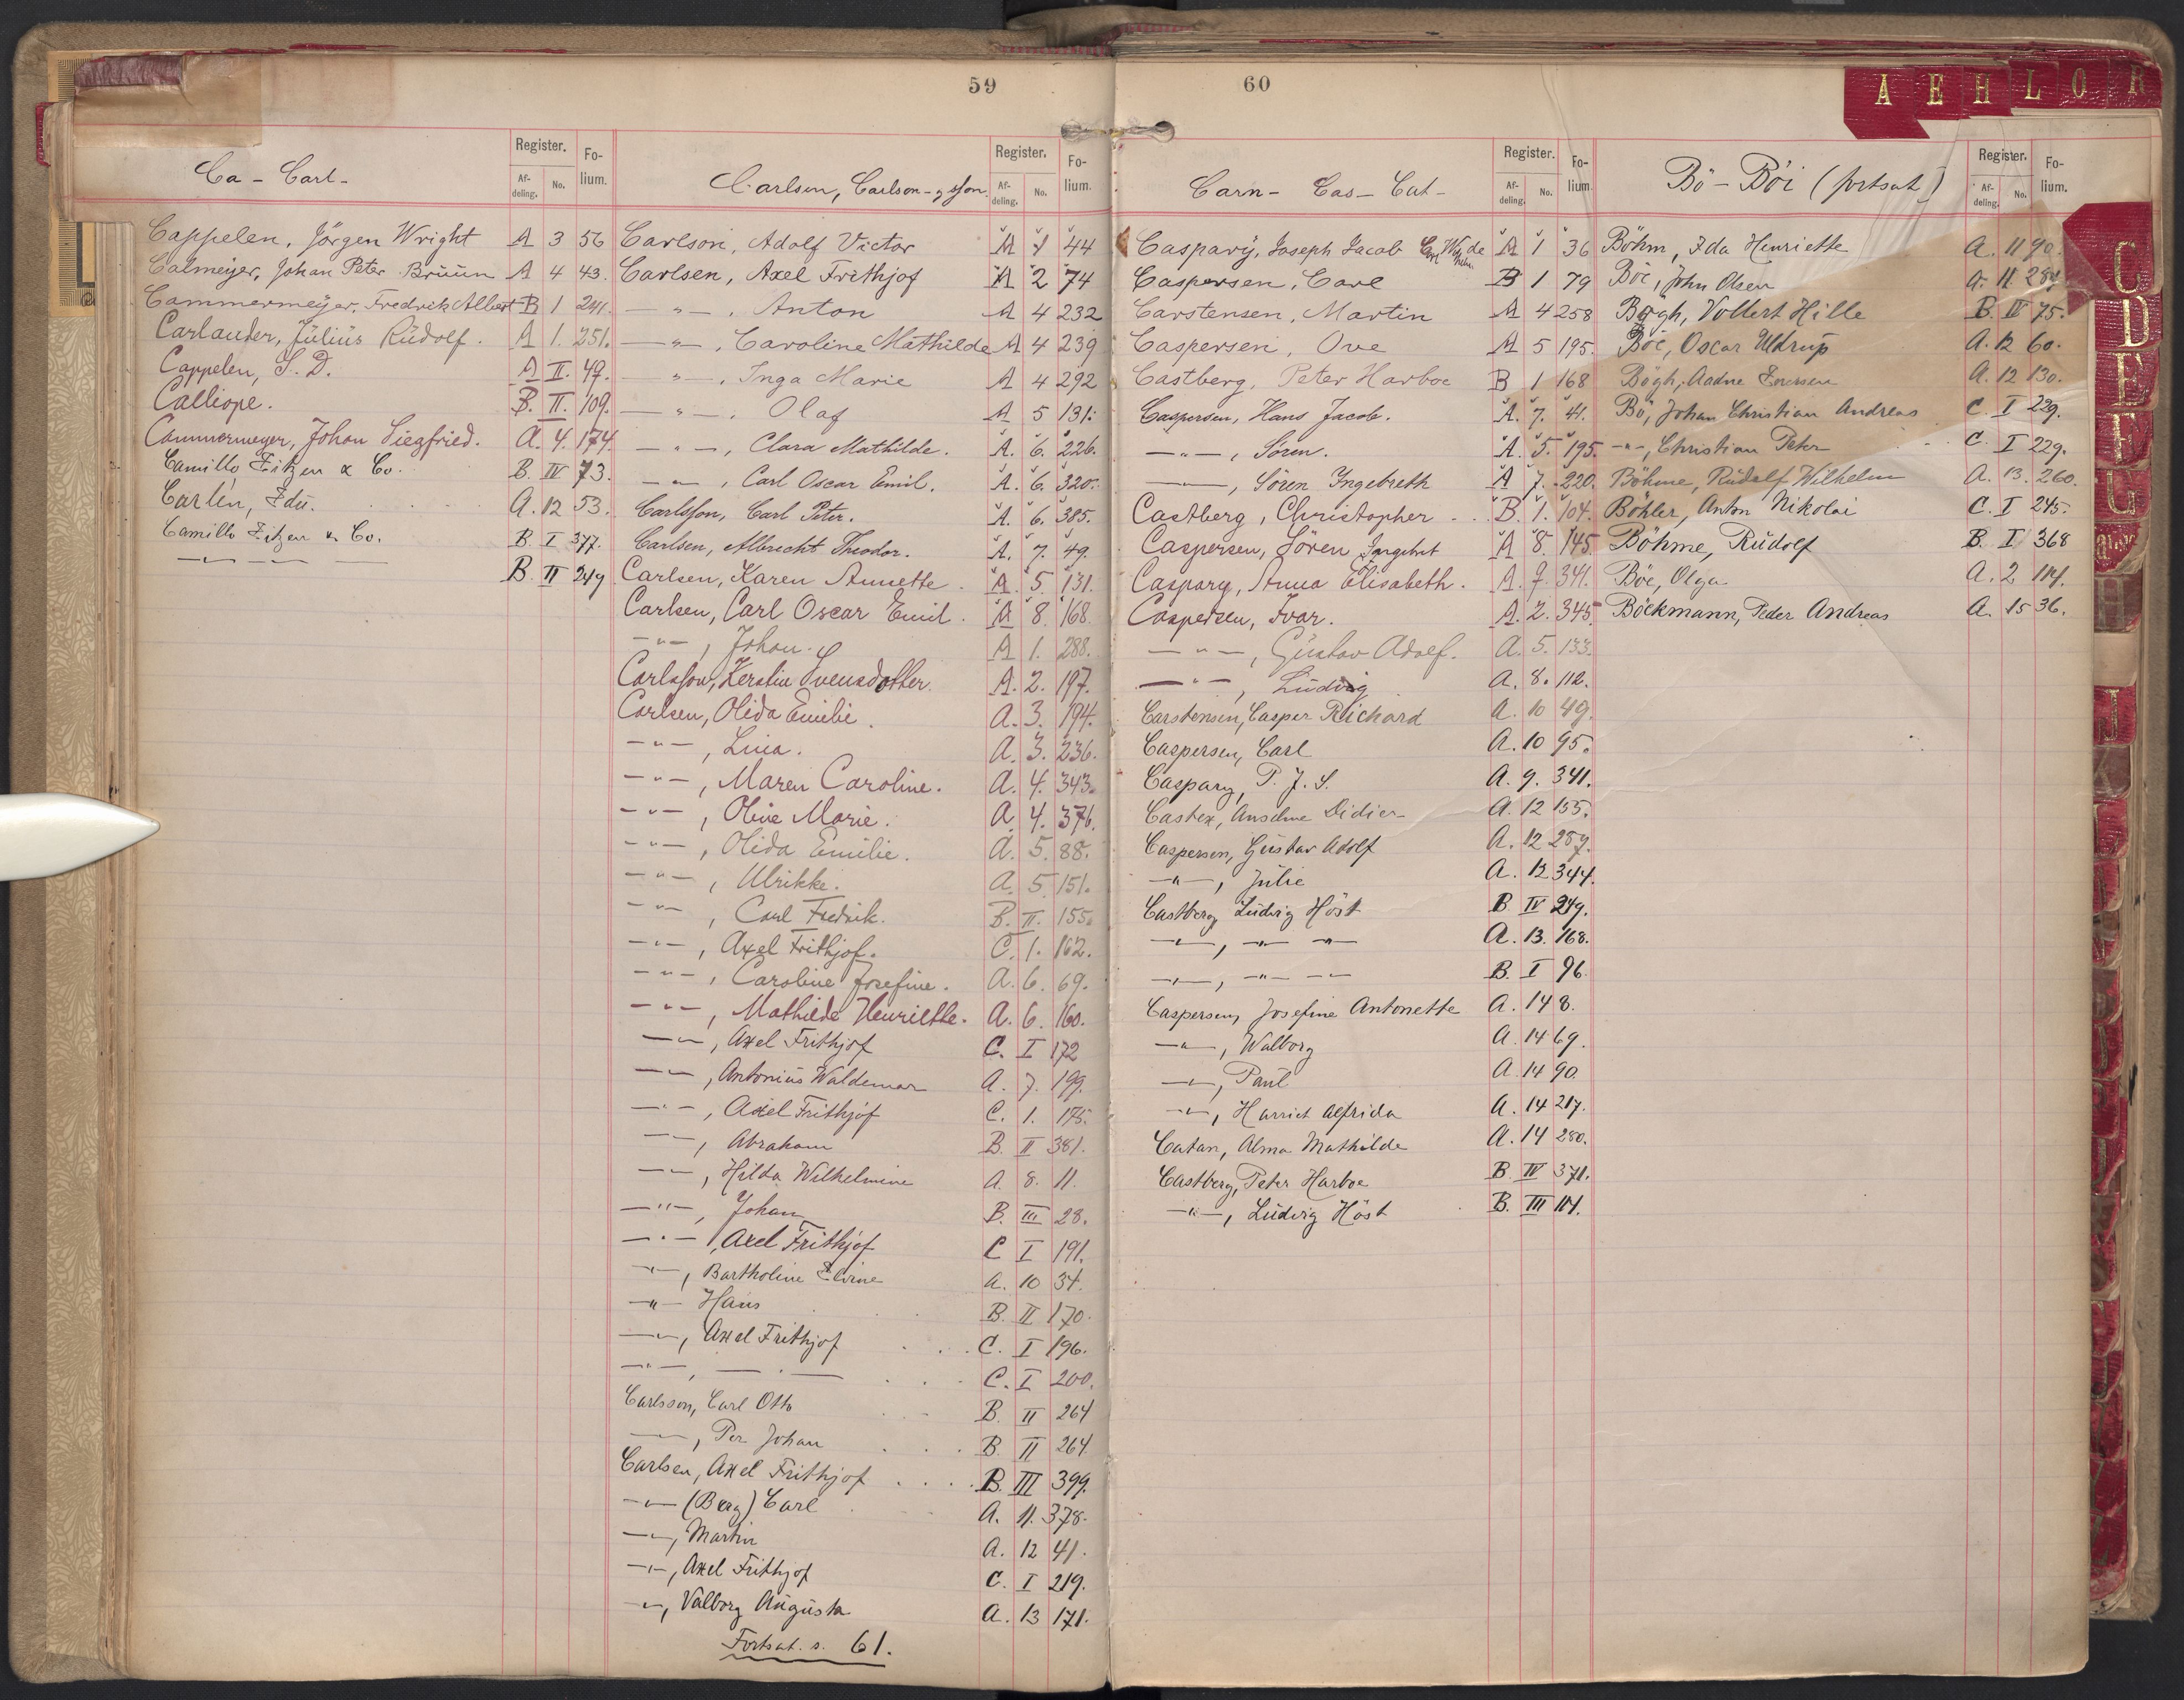 59
Ca - Carl -
Register.
Af-
deling.
No.
Fo-
lium.
Cappelen, Jörgen Wright A 3 56
Calmeijer, Johan Peter Brüün A 4 43.
Cammermeÿer, Fredrik Albert B 1 241.
Carlander, Jülius Rüdolf. A 1. 251.
Cappelen, S. D. A II. 49.
Calliope. B. II. 109.
Cammermeyer, Johan Siegfried. A. 4. 174.
Camillo Eitzen & Co. B. IV 73.
Carlén, Edu. A. 12 53.
Camillo Eitzen & Co. B. I 377.
—"— — — B. II 249
Carlsen, Carlson - og sson.
Register.
Af-
deling.
No.
Fo-
lium.
Carlson, Adolf Victor A 1 44
Carlsen, Axel Frithjof A 2 74
—"—, Anton A 4 232
—"—, Caroline Mathilde A 4 239
—"—, Inga Marie A 4 292
—"—, Olaf A 5 131.
—"—, Clara Mathilde. A. 6. 226.
—"—, Carl Oscar Emil. A. 6. 320.
Carlsson, Carl Peter. A. 6. 385.
Carlsen, Albrecht Theodor. A. 7. 49.
Carlsen, Karen Annette. A. 5. 131.
Carlsen, Carl Oscar Emil. A 8. 168.
—"—, Johan. A 1. 288.
Carlsson, Kerstin Svensdotter. A. 2. 197.
Carlsen, Olida Emilie. A. 3. 194.
—"—, Lina. A. 3. 236.
—"—, Maren Caroline. A. 4. 343.
—"—, Oline Marie. A. 4. 376.
—"—, Olida Emilie. A. 5. 88.
—"—, Ulrikke. A. 5. 151.
—"—, Carl Fredrik. B. II. 155.
—"—, Axel Frithjof. C. 1. 162.
—"—, Caroline Josefine. A. 6. 69.
—"—, Mathilde Henriette. A. 6. 160.
—"—, Axel Frithjof C. I 172
—"—, Antonius Waldemar A. 7. 199.
—"—, Axel Frithjof C. 1. 175.
—"—, Abraham B. II 381.
—"—, Hilda Wilhelmine A. 8. 11.
—"—, Johan B. III 28.
—"—, Axel Frithjof C I 191.
—"—, Bartholine Elvine A. 10 34.
—"— Hans B. II 170.
—"—, Axel Frithjof C. I 196.
—"—, — " — C. I 200.
Carlsson, Carl Otto B. II 264
—"—, Per Johan B II 264.
Carlsen, Axel Frithjof B. III 399.
—"— (Berg) Carl A. 11. 378.
—"—, Martin A. 12 41.
—"—, Axel Frithjof C. I 219.
—"—, Valborg Augusta A. 13 171.
Fortsat. s. 61.
60
Carn - Cas - Cat -
Register.
Af-
deling.
No.
Fo-
lium.
Casparÿ, Joseph Jacob Carl A 1 36
Caspersen, Carl B 1 79
Carstensen, Martin A 4 258
Caspersen, Ove A 5 195.
Castberg, Peter Harboe B 1 168
Caspersen, Hans Jacob. A. 7. 41.
—"—, Sören. A. 5. 195.
—"—, Sören Ingebreth A 7. 220.
Castberg, Christopher B. 1. 104.
Caspersen, Sören Ingebret A 8. 145
Caspary, Anna Elisabeth. A. 7. 341.
Caspersen, Ivar. A. 2. 345.
—"—, Güstav Adolf. A. 5. 133.
—"—, Lüdvig A. 8. 112.
Carstensen, Casper Richard A. 10 49.
Caspersen, Carl A. 10 95.
Caspary, P. J. S. A. 9. 341.
Castex, Anselme Didier A. 12 155.
Caspersen, Güstav Adolf A. 12 287.
—"—, Jülie A. 12 344.
Castberg Lüdvig Höst B IV 249.
—"—, —"— —"— A. 13. 168.
—"—, —"— —"— B. I 96.
Caspersen, Josefine Antonette A. 14 8.
—"—, Walborg A. 14 69.
—"—, Paül A. 14 90.
—"—, Harriet Alfrida A. 14 217.
Catan, Alma Mathilde A. 14 280.
Castberg, Peter Harboe B. IV 371.
—"—, Lüdvig Höst B. III 114.
Bö - Böi (fortsat)
Register.
Af-
deling.
No.
Fo-
lium.
Böhm, Ida Henriette A. 11 90.
Böe, John Olsen A. 11. 284.
Bøgh, Vollert Hille B. IV 75.
Böe, Oscar Uldrup A. 12 60.
Bögh, Aadne A. 12 130.
Bö, Johan Christian Andreas C. I 229.
—"—, Christian Peter C. I 229.
Böhme, Rüdolf Wilhelm A. 13. 260.
Böhler, Anton Nikolai C. I 245.
Böhme, Rüdolf B. I 368
Böe, Olga A. 2 114.
Böckmann, Peder Andreas A. 15 36.
A E H L O R
C
D
E
F
G
J
K